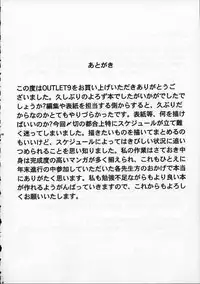 あとがき
この度はOUTLET9をお買い上げいただきありがとうご
ざいました。久しぶりのよろず本でしたがいかがでしたで
しょうか?編集や表紙を担当する側からすると、久ぶりだ
からなのかとてもやりづらかったです。表紙等、何を描け
ばいいのか?今回〆切の都合上特にスケジュールが立て難
く迷ってしまいました。描きたいものを描いてまとめるの
もいいけど、スケジュールによってはきびしい状況に追い
つめられることを思い知りました。私の作業はさておき中
身は完成度の高いマンガが多く揃えられ、これもひとえに
年末進行の中参加していただいた各先生方のおかげで本当
にありがたく思います。私も勉強不足ながらもより良い本
が作れるようがんばっていきますので、これからもよろし
くお願いいたします。